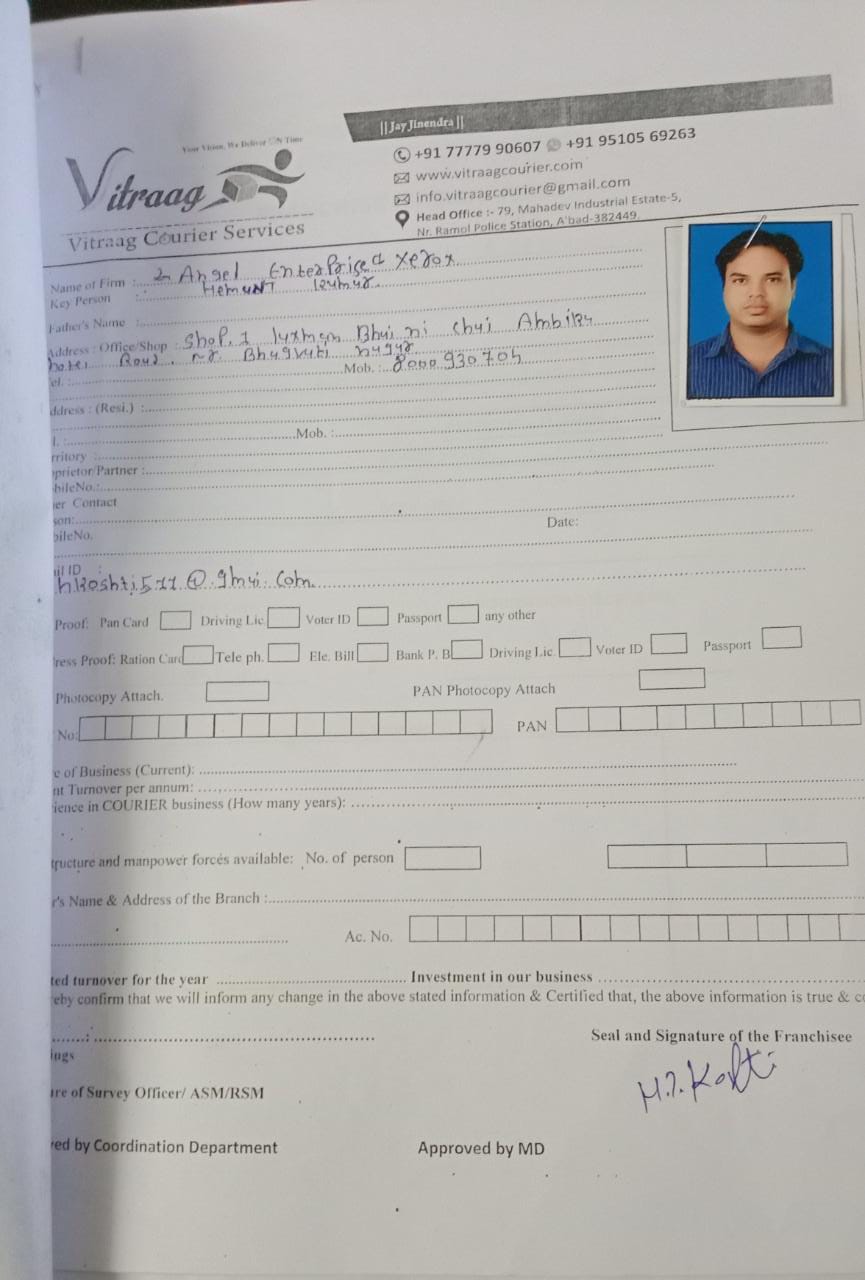 || Jay Jinendra ||
Your Vision, We Deliver ON Time
Vitraag
Vitraag Courier Services
+91 77779 90607 +91 95105 69263
www.vitraagcourier.com
info.vitraagcourier@gmail.com
Head Office :- 79, Mahadev Industrial Estate-5,
Nr. Ramol Police Station, A'bad-382449.
Name of Firm : Angel EnterPrise Xerox
Key Person : Hemant
Father's Name :
Address : Office/Shop : Shop. 1 Bhai ni Chai
Road. nr
el. : Mob. : 8000930705
ddress : (Resi.) :
l. : Mob. :
rritory :
oprietor/Partner :
bileNo.:
er Contact
son:
Date:
bileNo.
il ID :
hkoshti511@
Proof: Pan Card Driving Lic. Voter ID Passport any other
ress Proof: Ration Card Tele ph. Ele. Bill Bank P. B Driving Lic. Voter ID Passport
Photocopy Attach. PAN Photocopy Attach
No: PAN
e of Business (Current):
nt Turnover per annum:
ience in COURIER business (How many years):
tructure and manpower forces available: No. of person
r's Name & Address of the Branch :
Ac. No.
ted turnover for the year Investment in our business
eby confirm that we will inform any change in the above stated information & Certified that, the above information is true & co
Seal and Signature of the Franchisee
ings
re of Survey Officer/ ASM/RSM
ved by Coordination Department Approved by MD